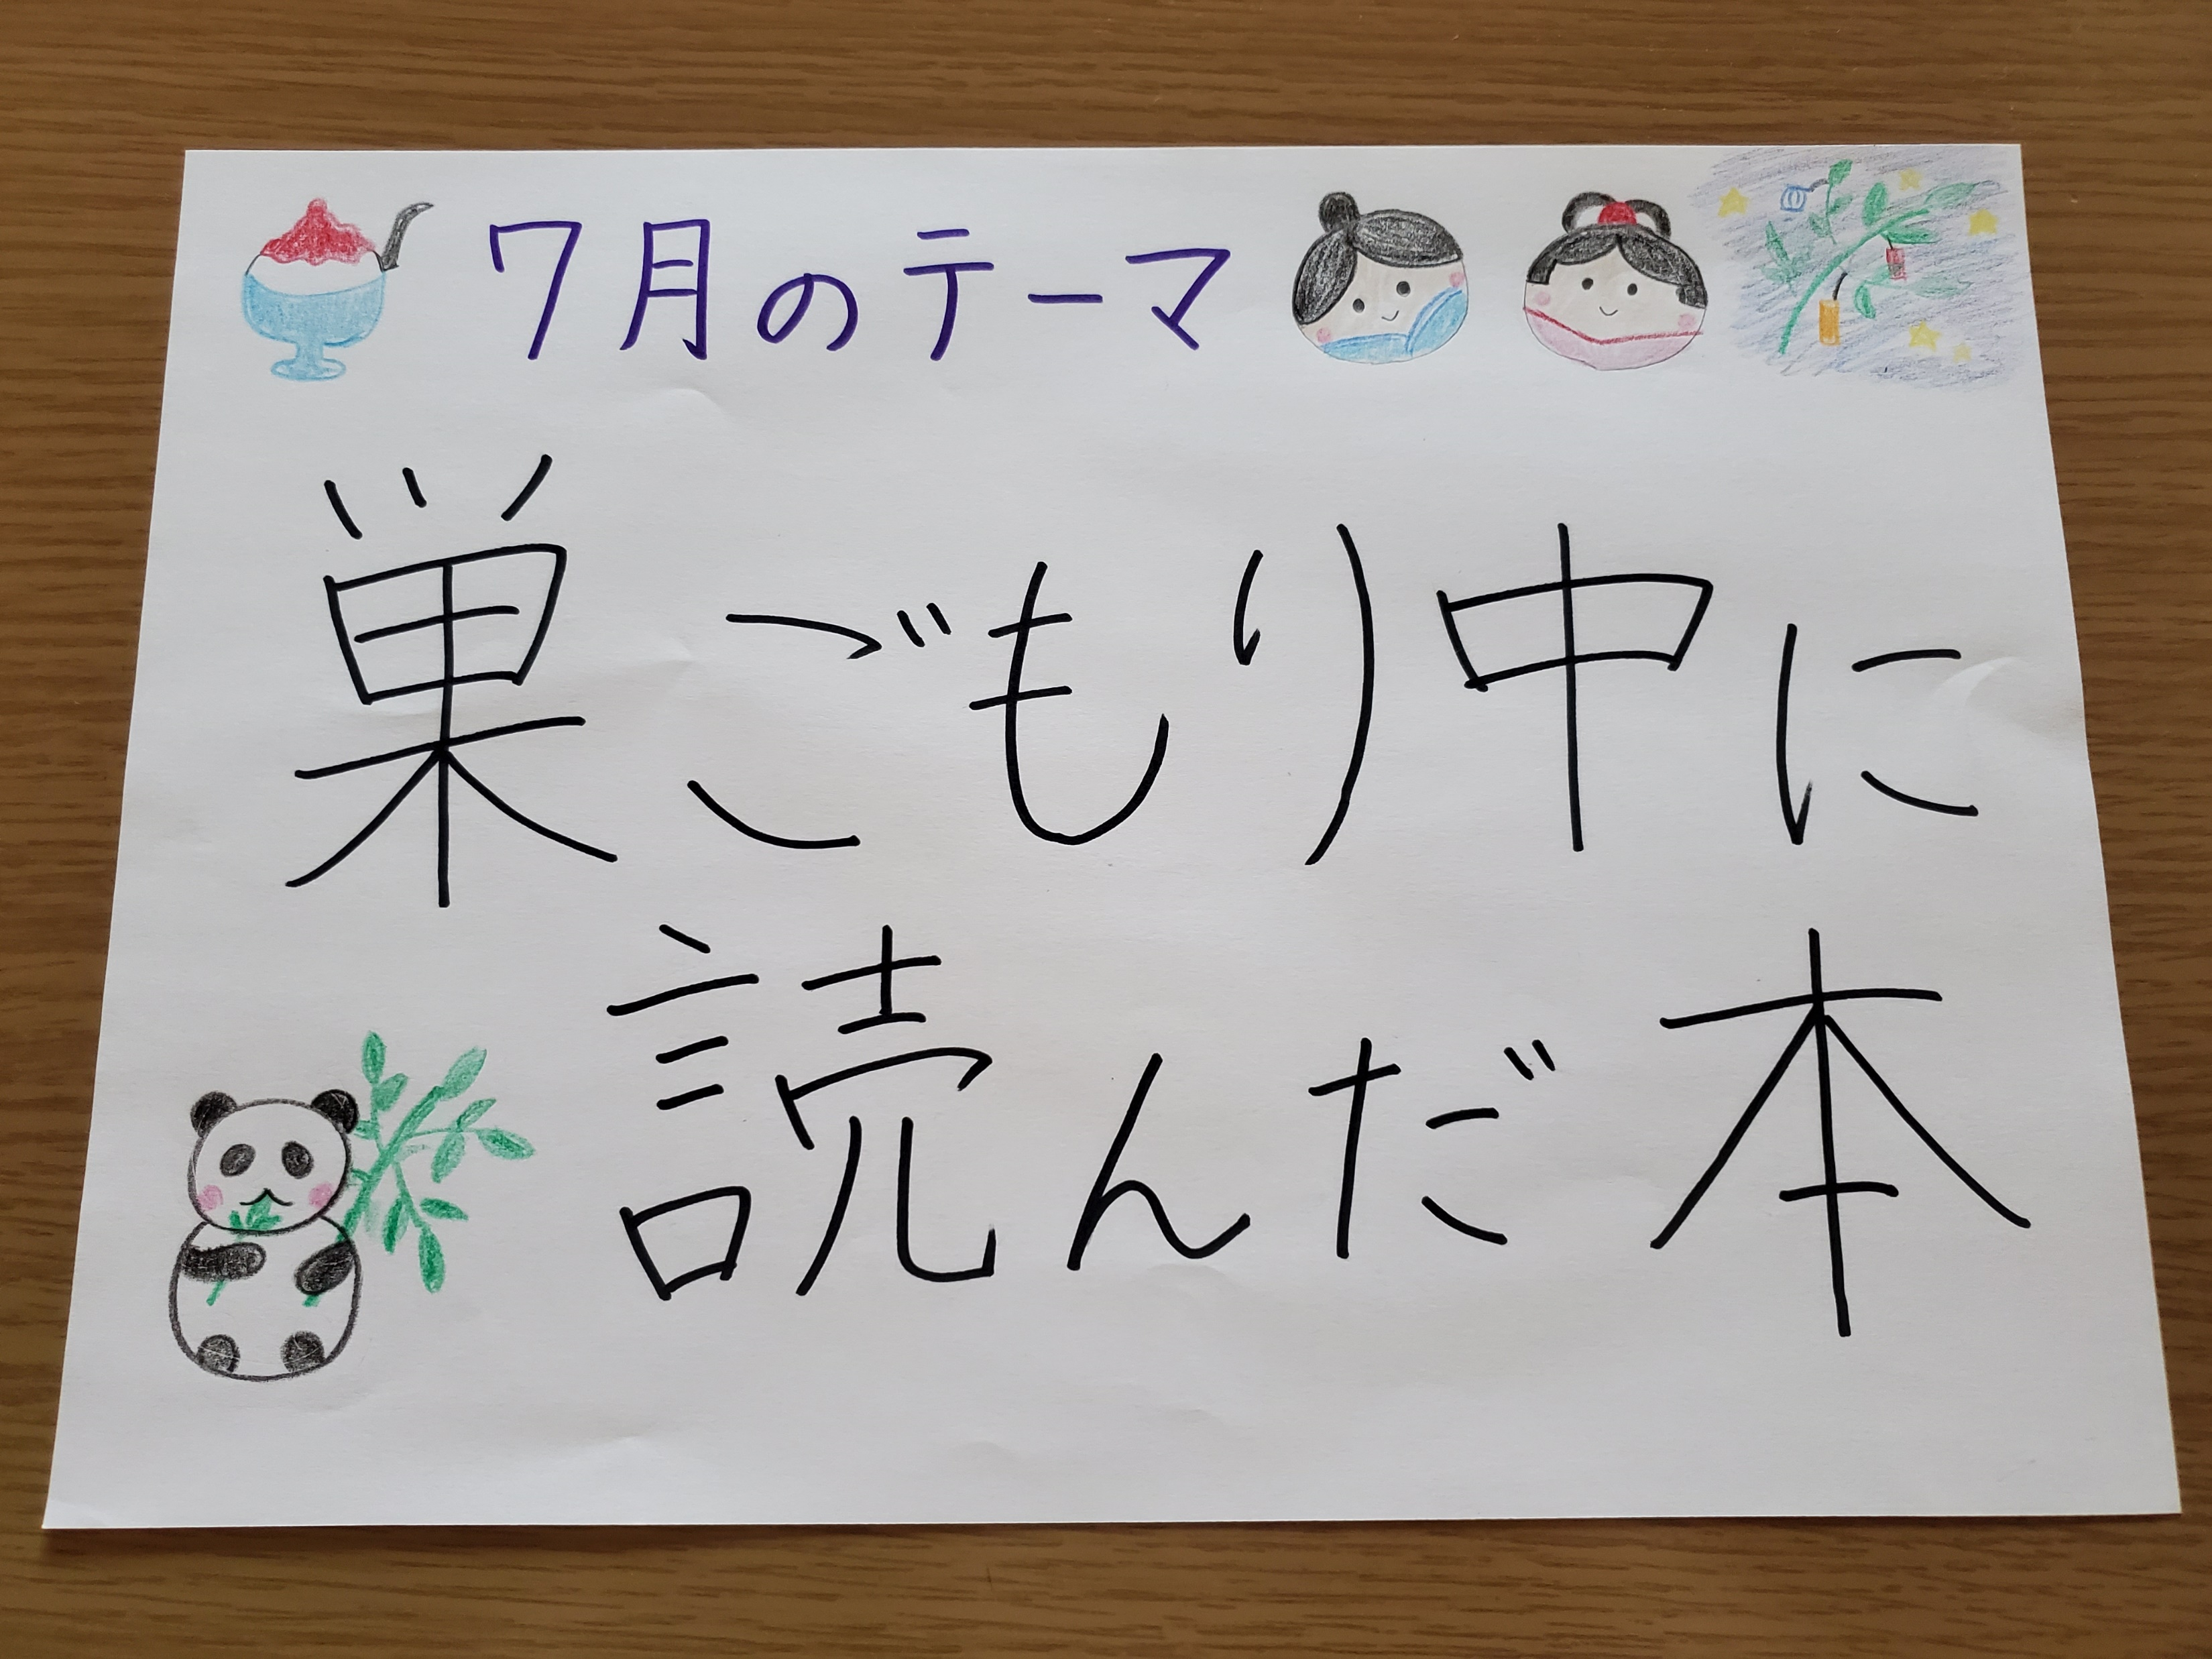 7月のテーマ
巣ごもり中に
読んだ本